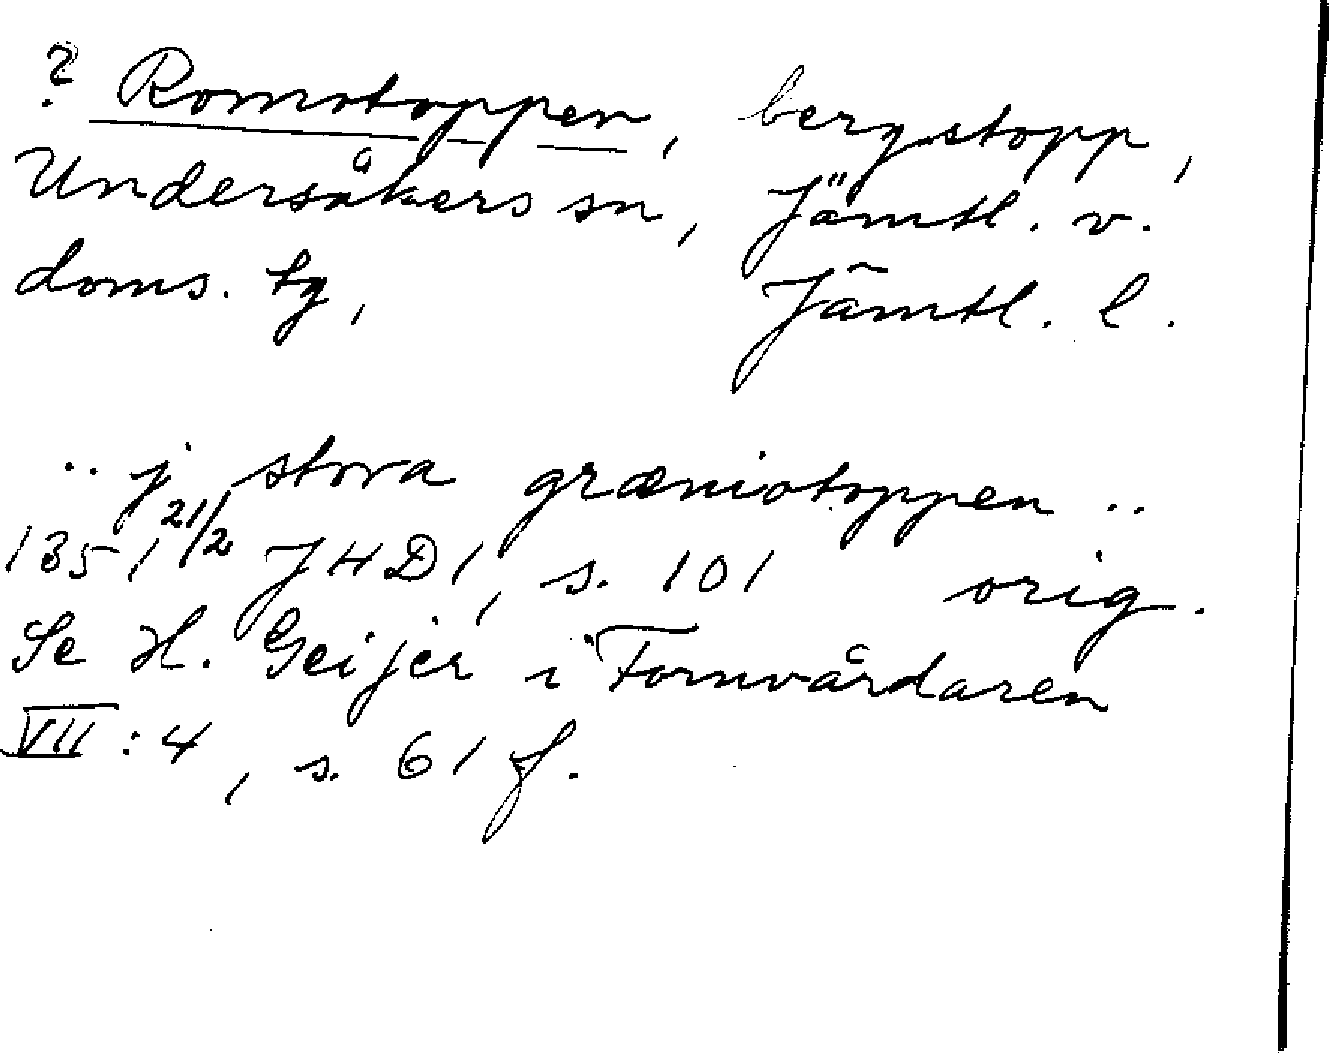 ? Romstoppen, bergstopp,
Undersåkers sn, Jämtl. v.
doms. tg, Jämtl. l.
.. j stora græniotoppen ..
1351 21/2 JHD1, s. 101 orig.
Se H. Geijer i Fornvårdaren
VII:4, s. 61 f.